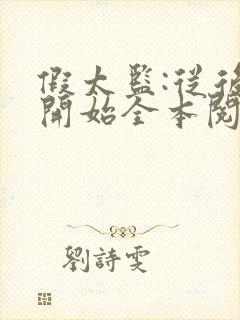 假太監:從後
開始全本閱
劉詩雯